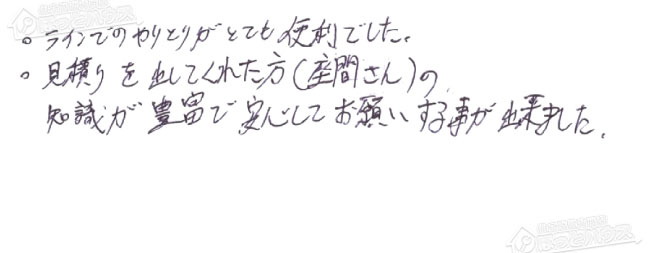 。ラインでのやりとりがとても便利でした。
。見積りを出してくれた方(座間さん)の
知識が豊富で安心してお願いする事が出来ました。